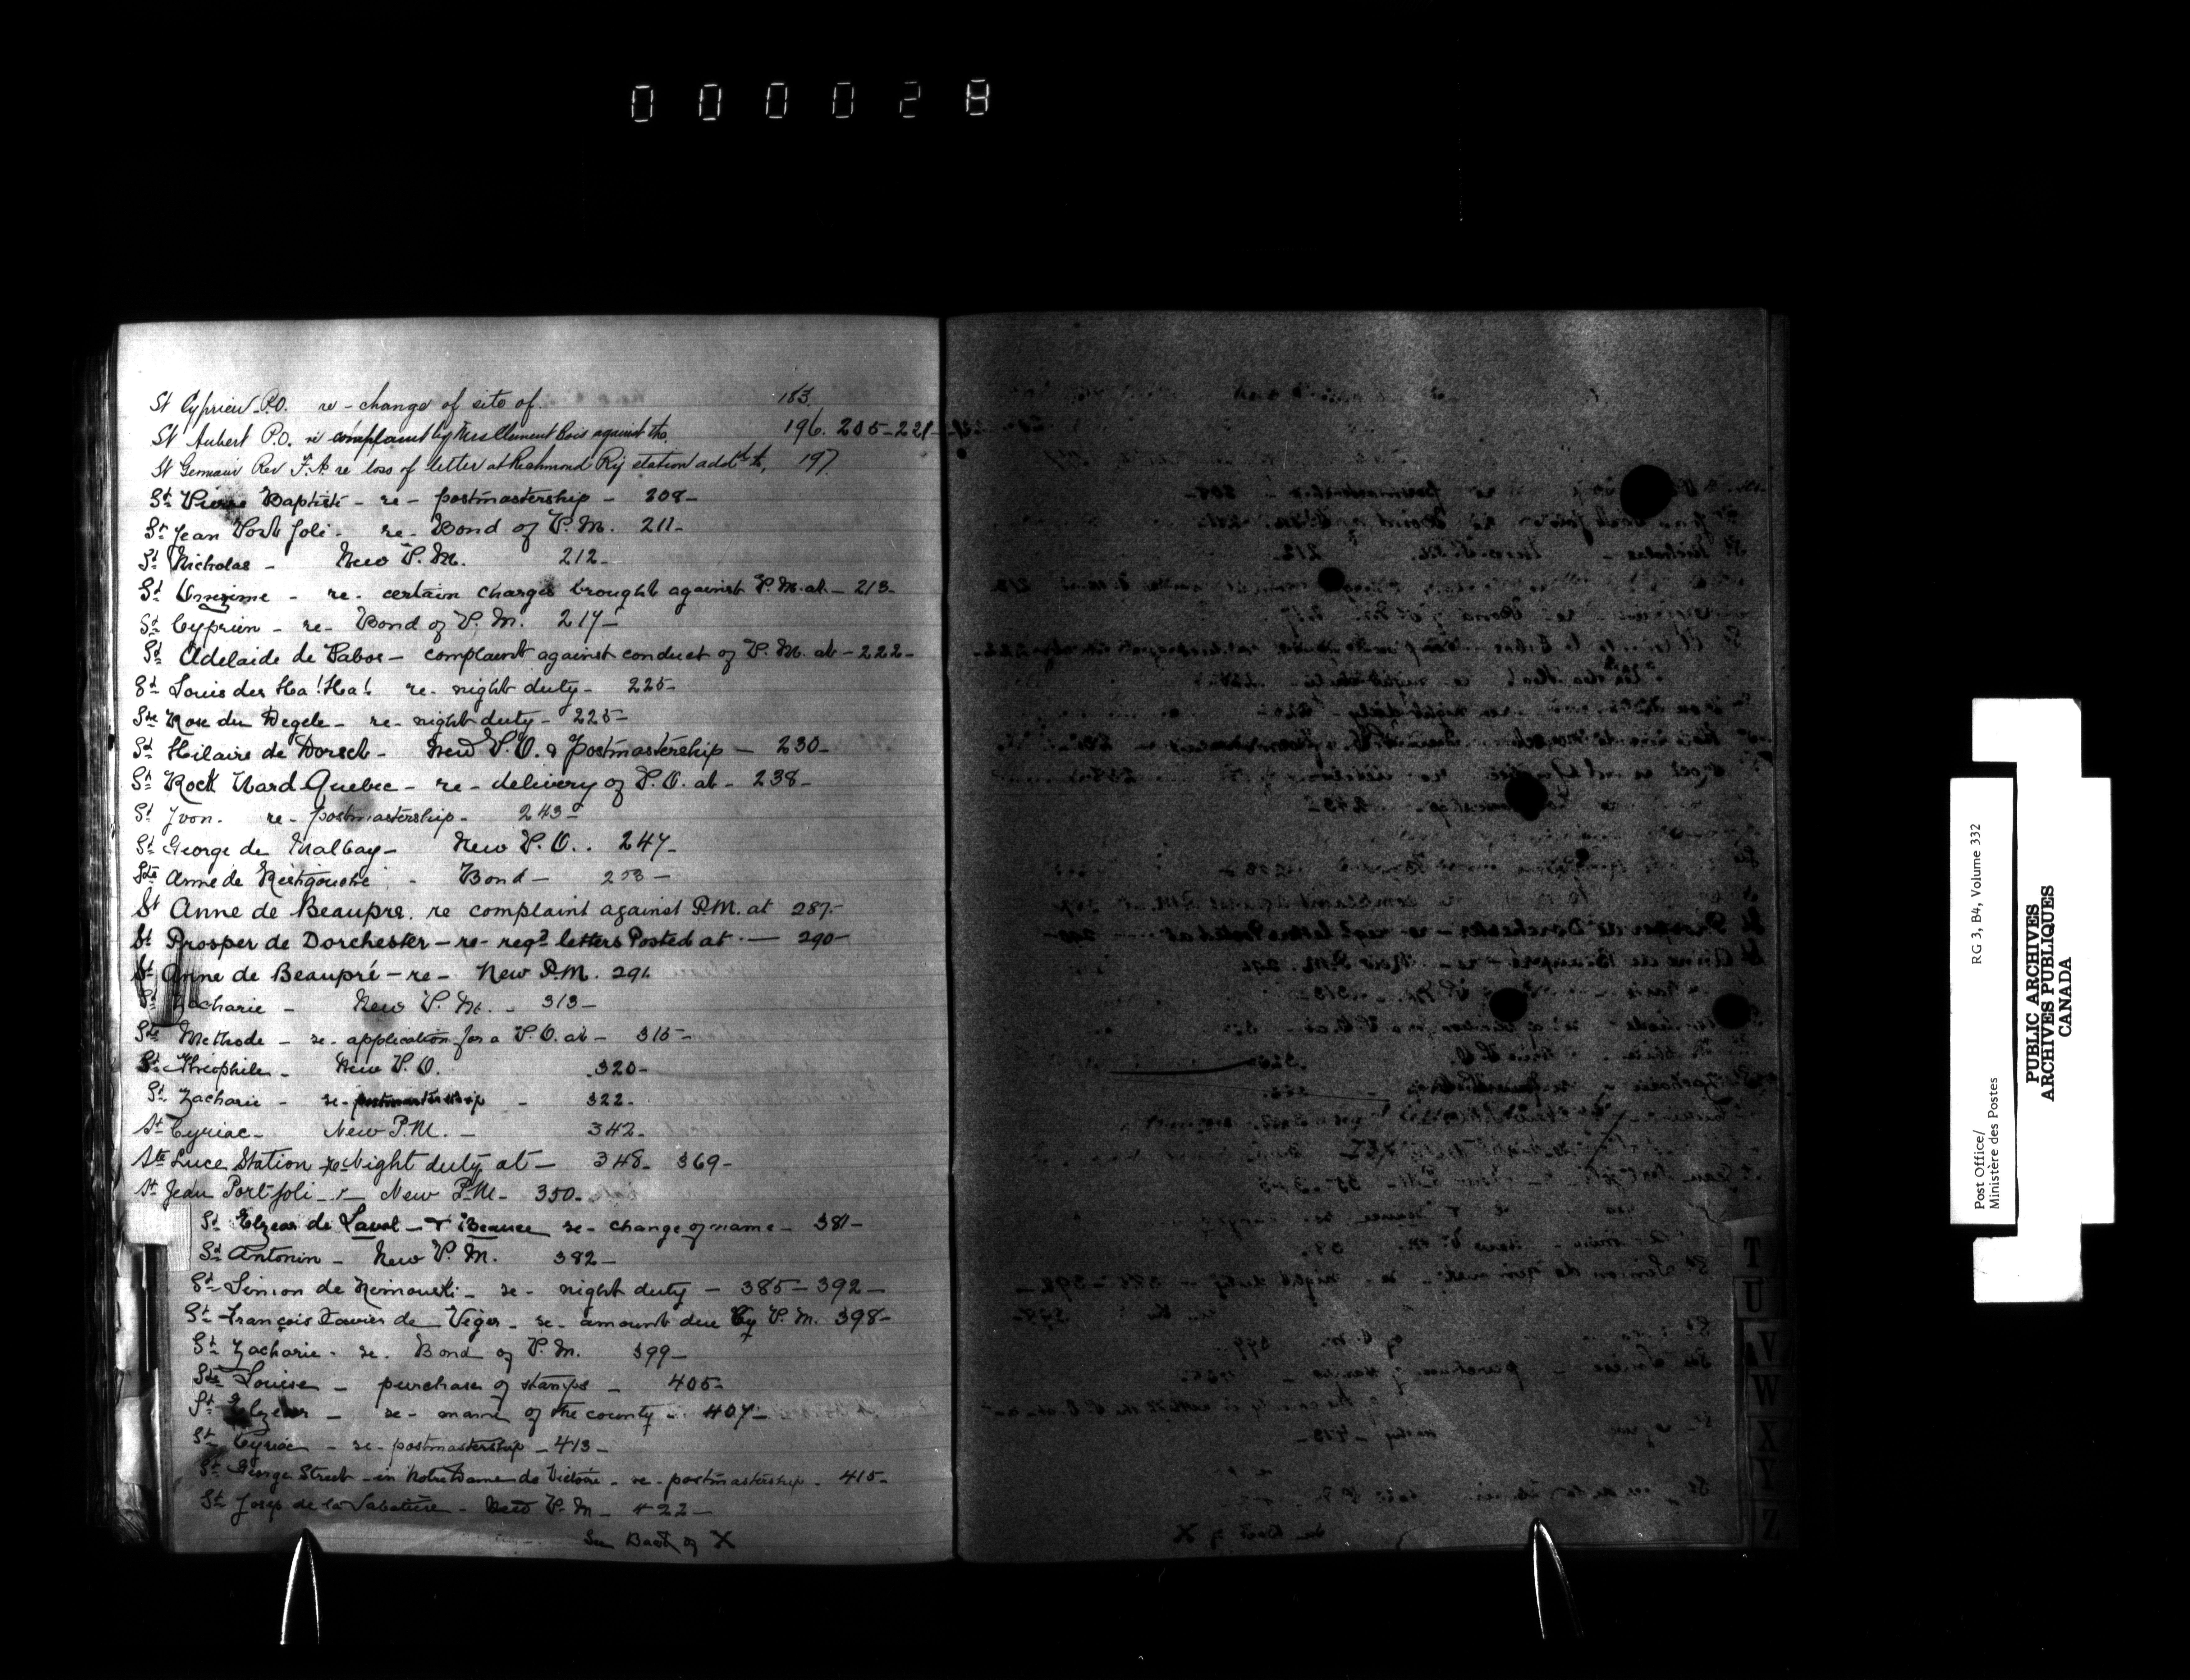 000028
St Cyprien P.O. re - change of site of. 183.
St Aubert P.O. re complaint by Mrs Clement Bois against the. 196. 205-221-
St Germain Rev F.A. re loss of letter at Richmond Ry station addd to, 197
St Pierre Baptiste - re - postmastership - 208-
St Jean Port Joli - re - Bond of P.M. 211-
St Nicholas - New P.M. 212-
St Onezime - re - certain charges brought against P.M. at - 213-
St Cyprien - re - Bond of P.M. 217-
St Adelaide de Pabos - complaint against conduct of P.M. at - 222-
St Louis des Ha! Ha! re - night duty - 225-
Ste Rose du Degele - re - night duty - 225-
St Hilaire de Dorset - New P.O. & Postmastership - 230-
St Rock Ward Quebec - re - delivery of P.O. at - 238-
St Yvon - re - postmastership - 243-
St George de Malbay - New P.O. . 247-
Ste Anne de Ristigouche - Bond -
St Anne de Beaupre. re complaint against P.M. at 287.-
St Prosper de Dorchester - re - regd letters Posted at - 290-
St Anne de Beaupré - re - New P.M. 291.
St Zacharie - New P.M. - 313-
Ste Methode - re - application for a P.O. at - 315-
St Théophile - New P.O. 320-
St Zacharie - re - postmastership - 322-
St Cyriac - New P.M. - 342-
Ste Luce Station re Night duty at - 348- 369-
St Jean Port Joli - r - New P.M. - 350-
St Elzear de Laval - & Beauce re - change of name - 381-
St Antonin - New P.M. 382-
St Simon de Rimouski - re - night duty - 385-392-
St François Xavier de Viger - re - amount due by P.M. 398-
St Zacharie - re - Bond of P.M. 399-
Ste Louise - purchase of stamps - 405-
St Elzear - re - name of the county - 407-
St Cyriac - re - postmastership - 413-
St George Street - in Notre Dame de Victoire - re - postmastership - 415-
St Josep de la - New P.M. - 422-
See Back of X
T
U
V
W
X
Y
Z
Post Office/ RG 3, B4, Volume 332
Ministère des Postes
PUBLIC ARCHIVES
ARCHIVES PUBLIQUES
CANADA